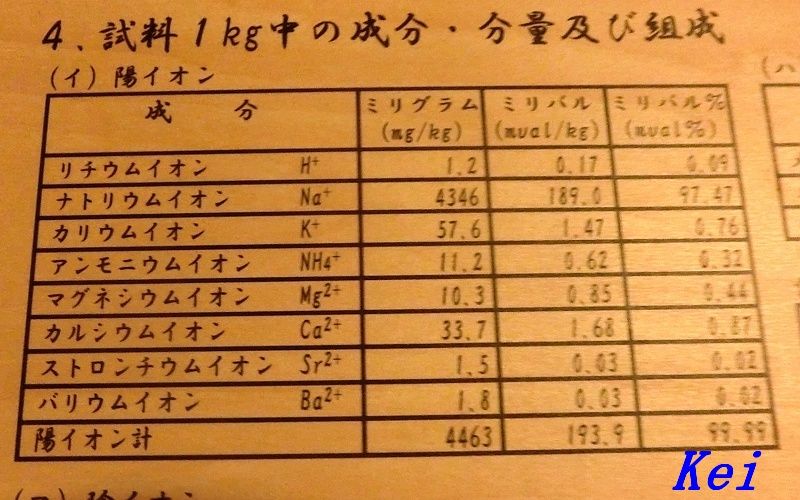 4. 試料1kg中の成分・分量及び組成
(イ) 陽イオン
(ハ
成 分 ミリグラム (mg/kg) ミリバル (mval/kg) ミリバル% (mval%)
リチウムイオン H+ 1.2 0.17 0.09
ナトリウムイオン Na+ 4346 189.0 97.47
カリウムイオン K+ 57.6 1.47 0.76
アンモニウムイオン NH4+ 11.2 0.62 0.32
マグネシウムイオン Mg2+ 10.3 0.85 0.44
カルシウムイオン Ca2+ 33.7 1.68 0.87
ストロンチウムイオン Sr2+ 1.5 0.03 0.02
バリウムイオン Ba2+ 1.8 0.03 0.02
陽イオン計 4463 193.9 99.99
(ロ) 陰イオン
Kei